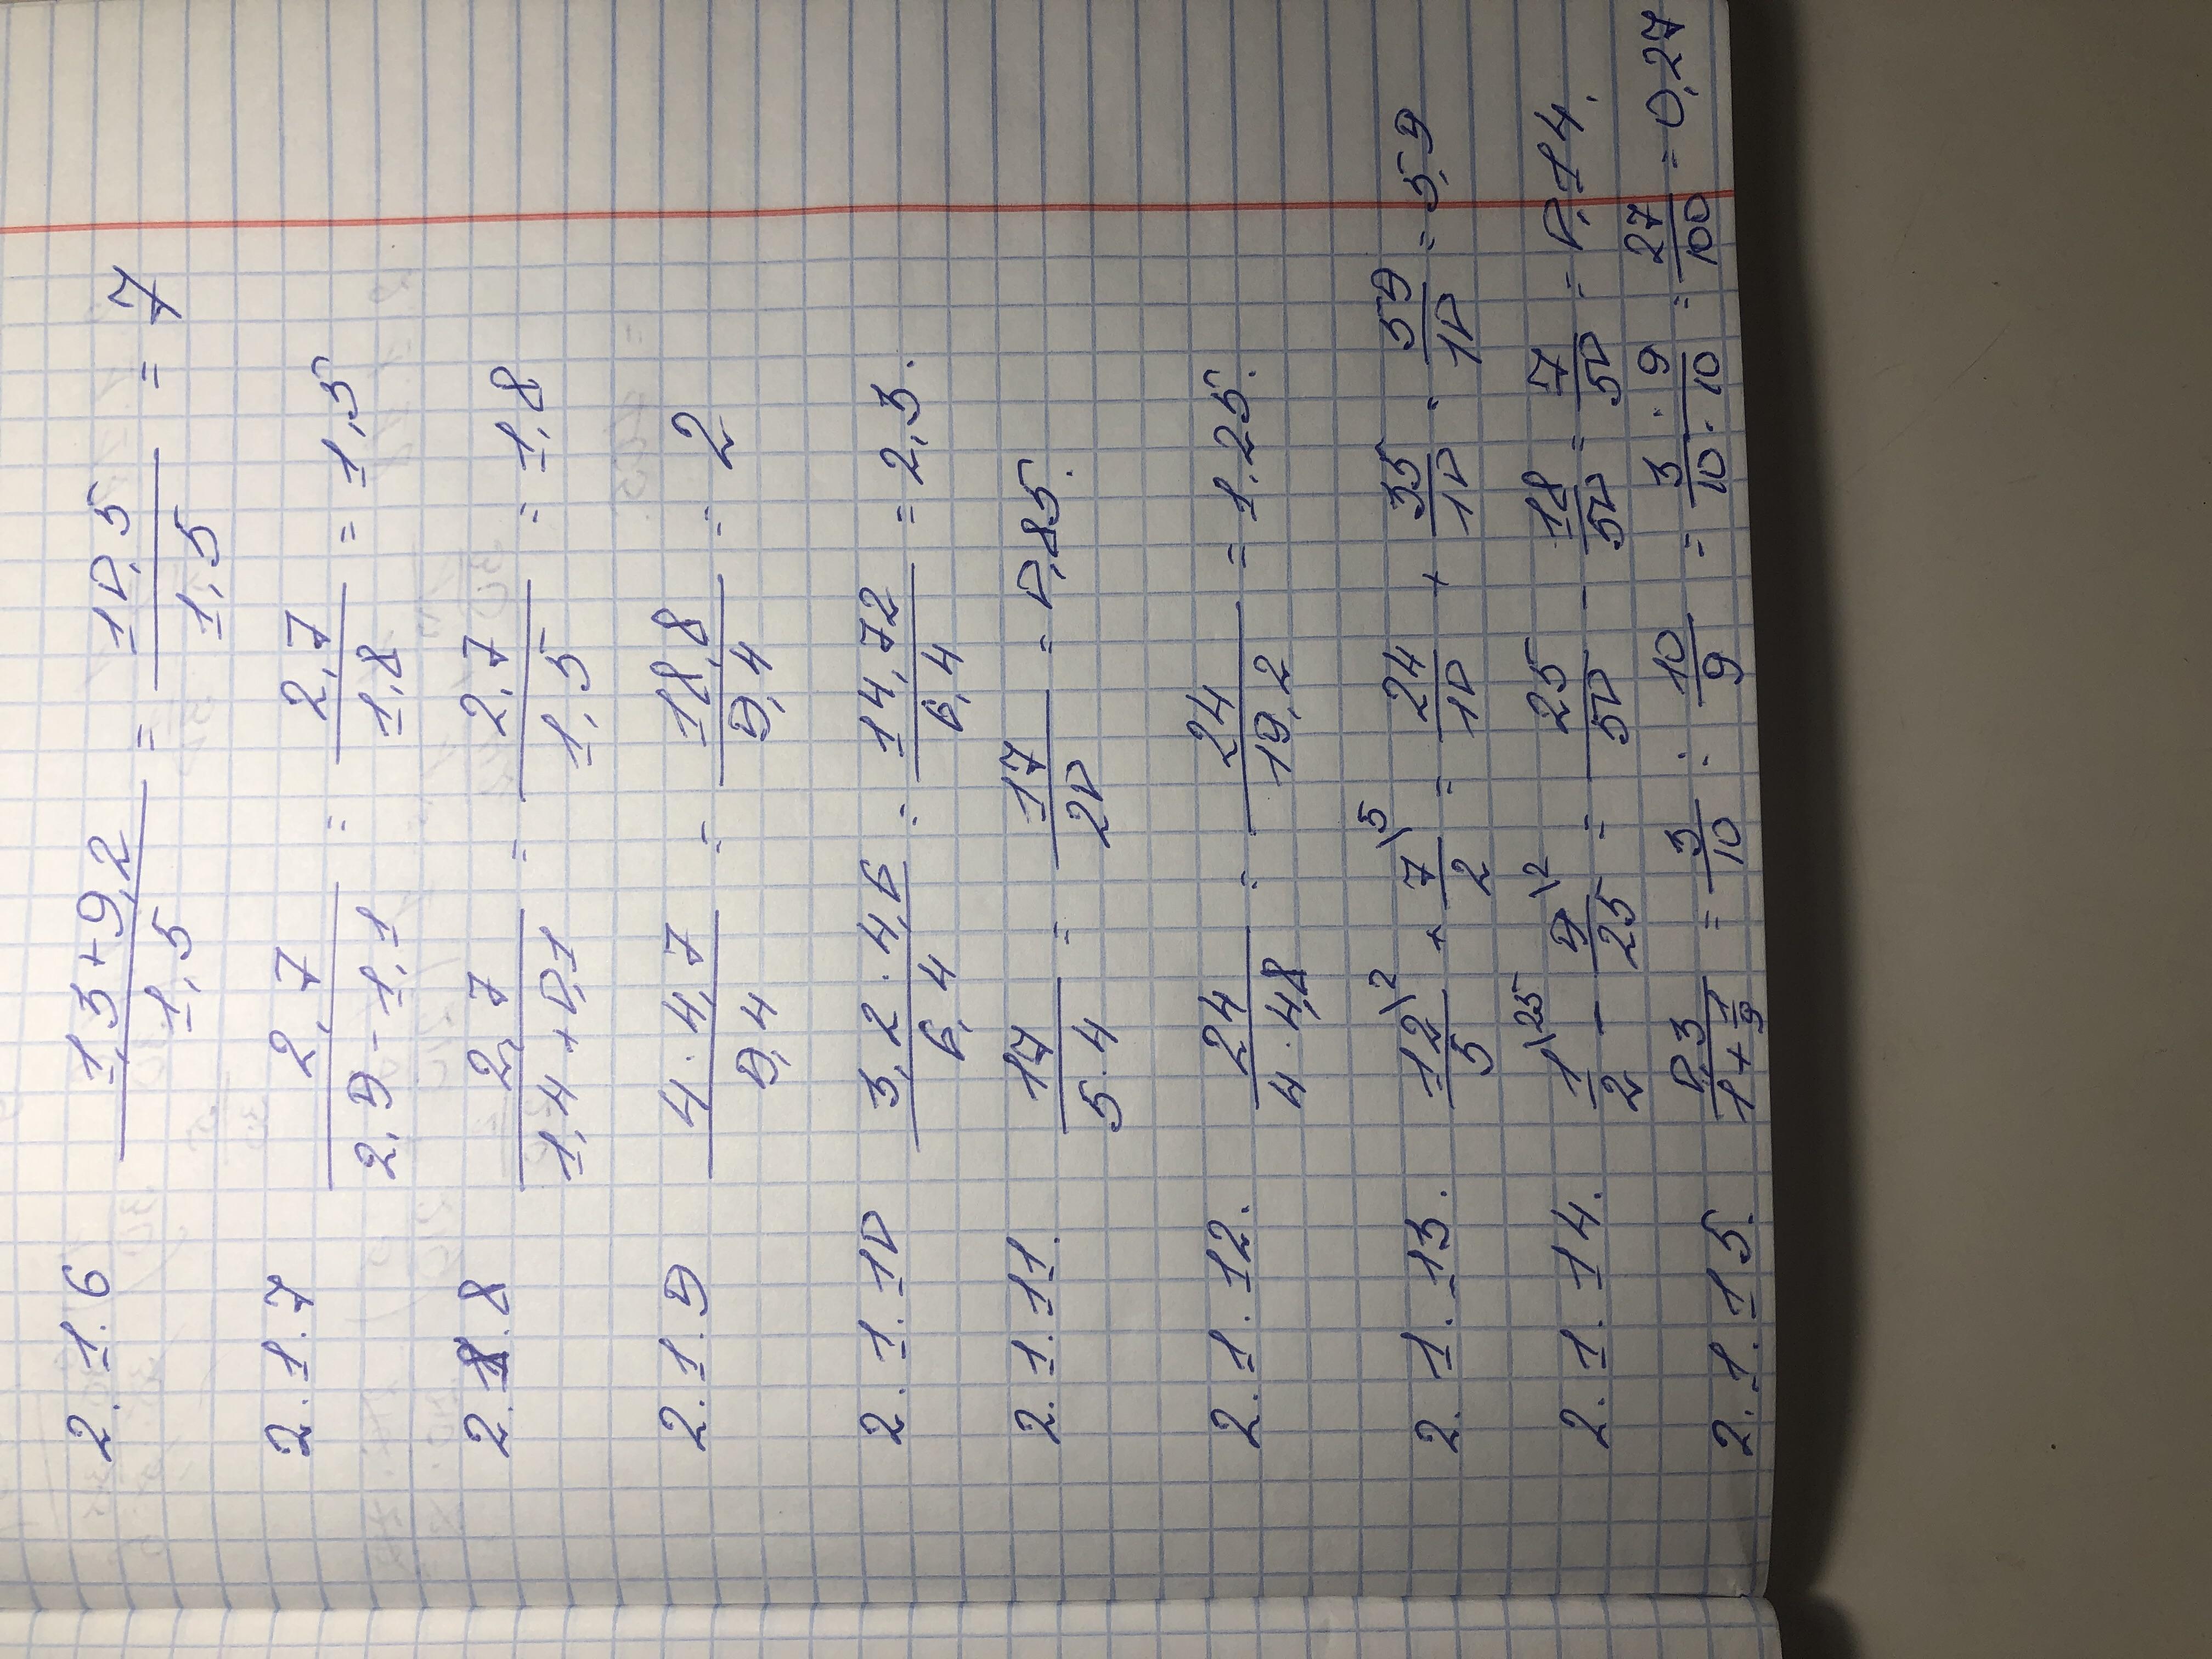 2.1.6 (1,3+9,2)/1,5 = 10,5/1,5 = 7
2.1.7 2,7/(2,9-1,1) = 2,7/1,8 = 1,5
2.1.8 2,7/(1,4+0,1) = 2,7/1,5 = 1,8
2.1.9 (4·4,7)/9,4 = 18,8/9,4 = 2
2.1.10 (3,2·4,6)/6,4 = 14,72/6,4 = 2,3.
2.1.11. 17/(5·4) = 17/20 = 0,85.
2.1.12. 24/(4·4,8) = 24/19,2 = 1.25.
2.1.13. 12/5\2 + 7/2\5 = 24/10 + 35/10 = 59/10 = 5,9
2.1.14. 1/2\25 - 9/25\2 = 25/50 - 18/50 = 7/50 = 0,14.
2.1.15. 0,3/(1+1/9) = 3/10 : 10/9 = 3/10 · 9/10 = 27/100 = 0,27